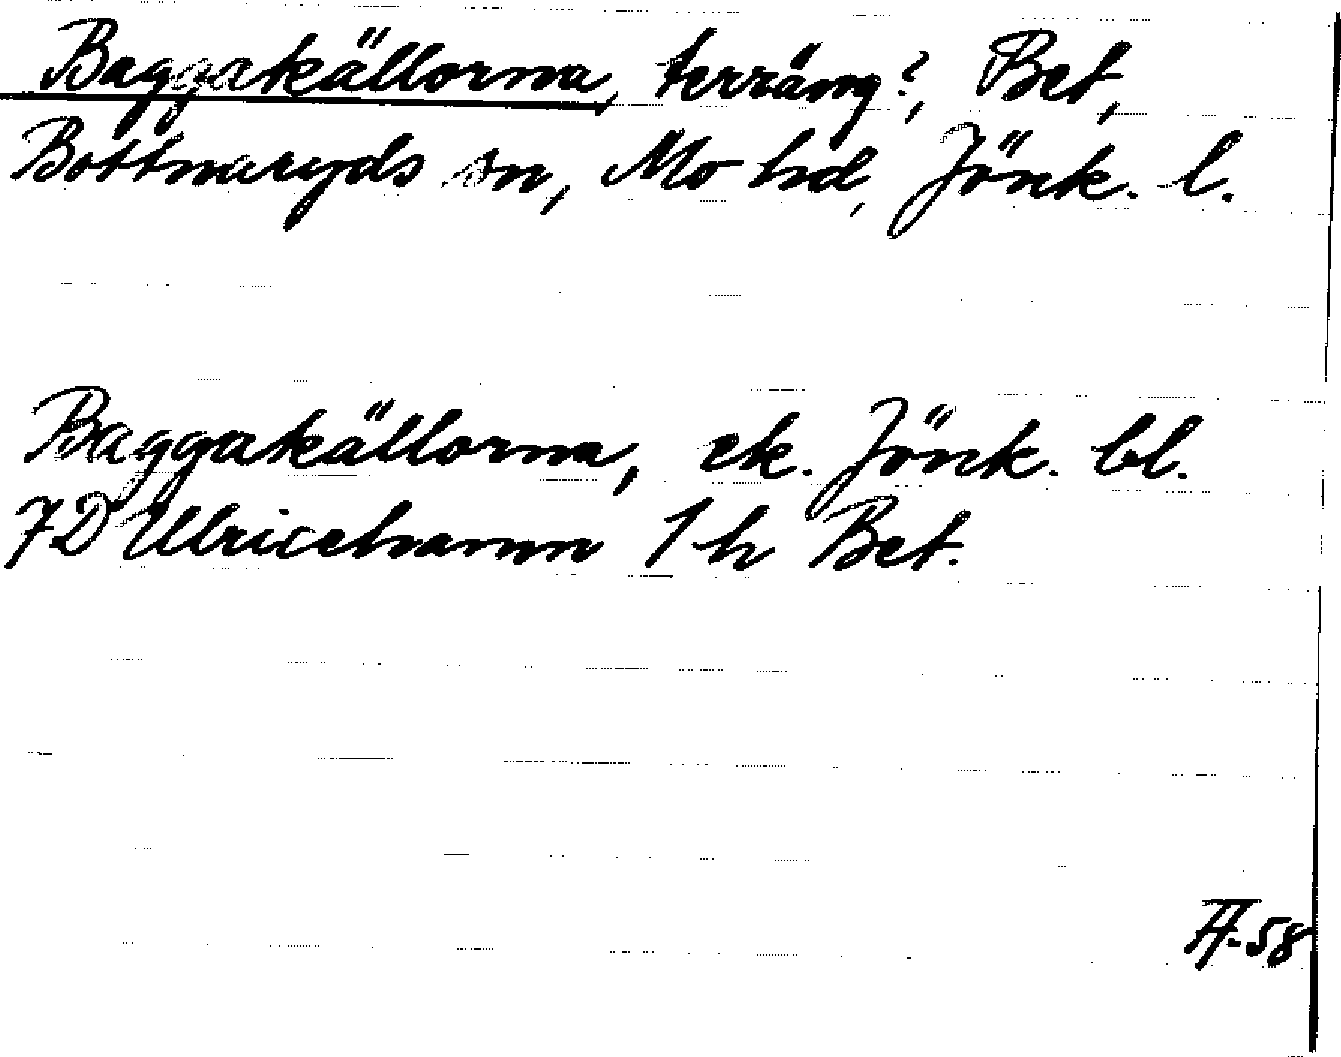 Baggakällorna, terräng?, Bet,
Bottnaryds sn, Mo hd, Jönk. l.
Baggakällorna, ek. Jönk. bl.
7D Ulricehamn 1h Bet.
-58